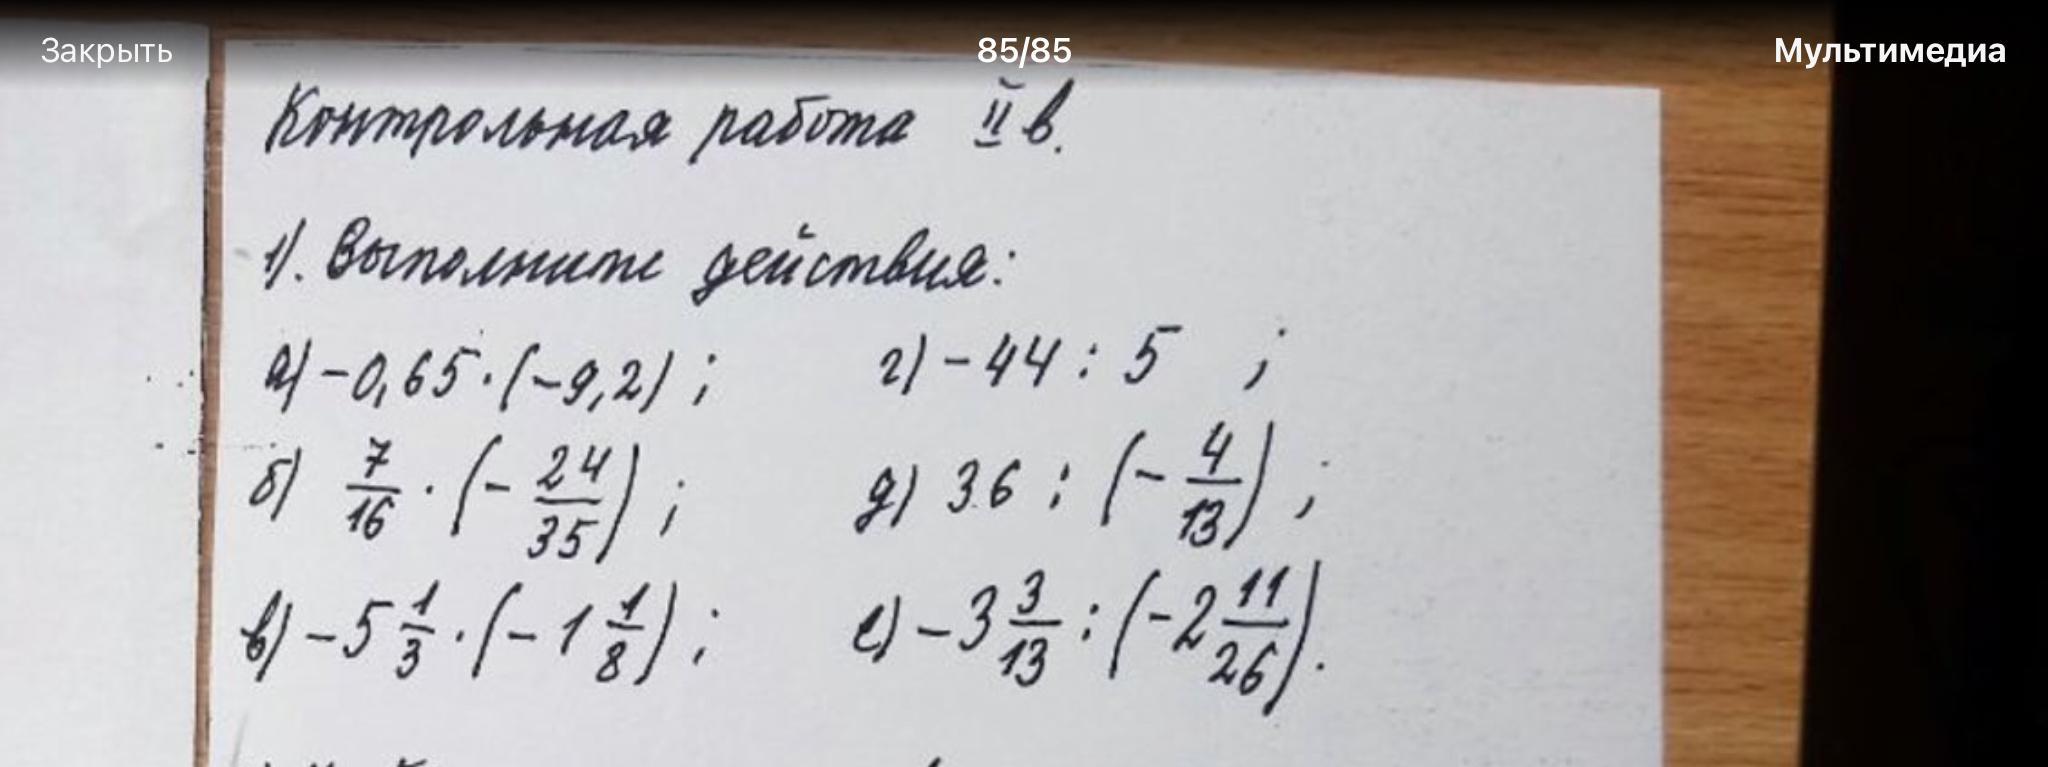 Закрыть 85/85 Мультимедиа
Контрольная работа II в.
1). Выполните действия:
а) -0,65·(-9,2) ; г) -44 : 5 ;
б) 7/16 · (- 24/35) ; д) 36 : (- 4/13) ;
в) -5 1/3 · (-1 1/8) ; е) -3 3/13 : (-2 11/26).